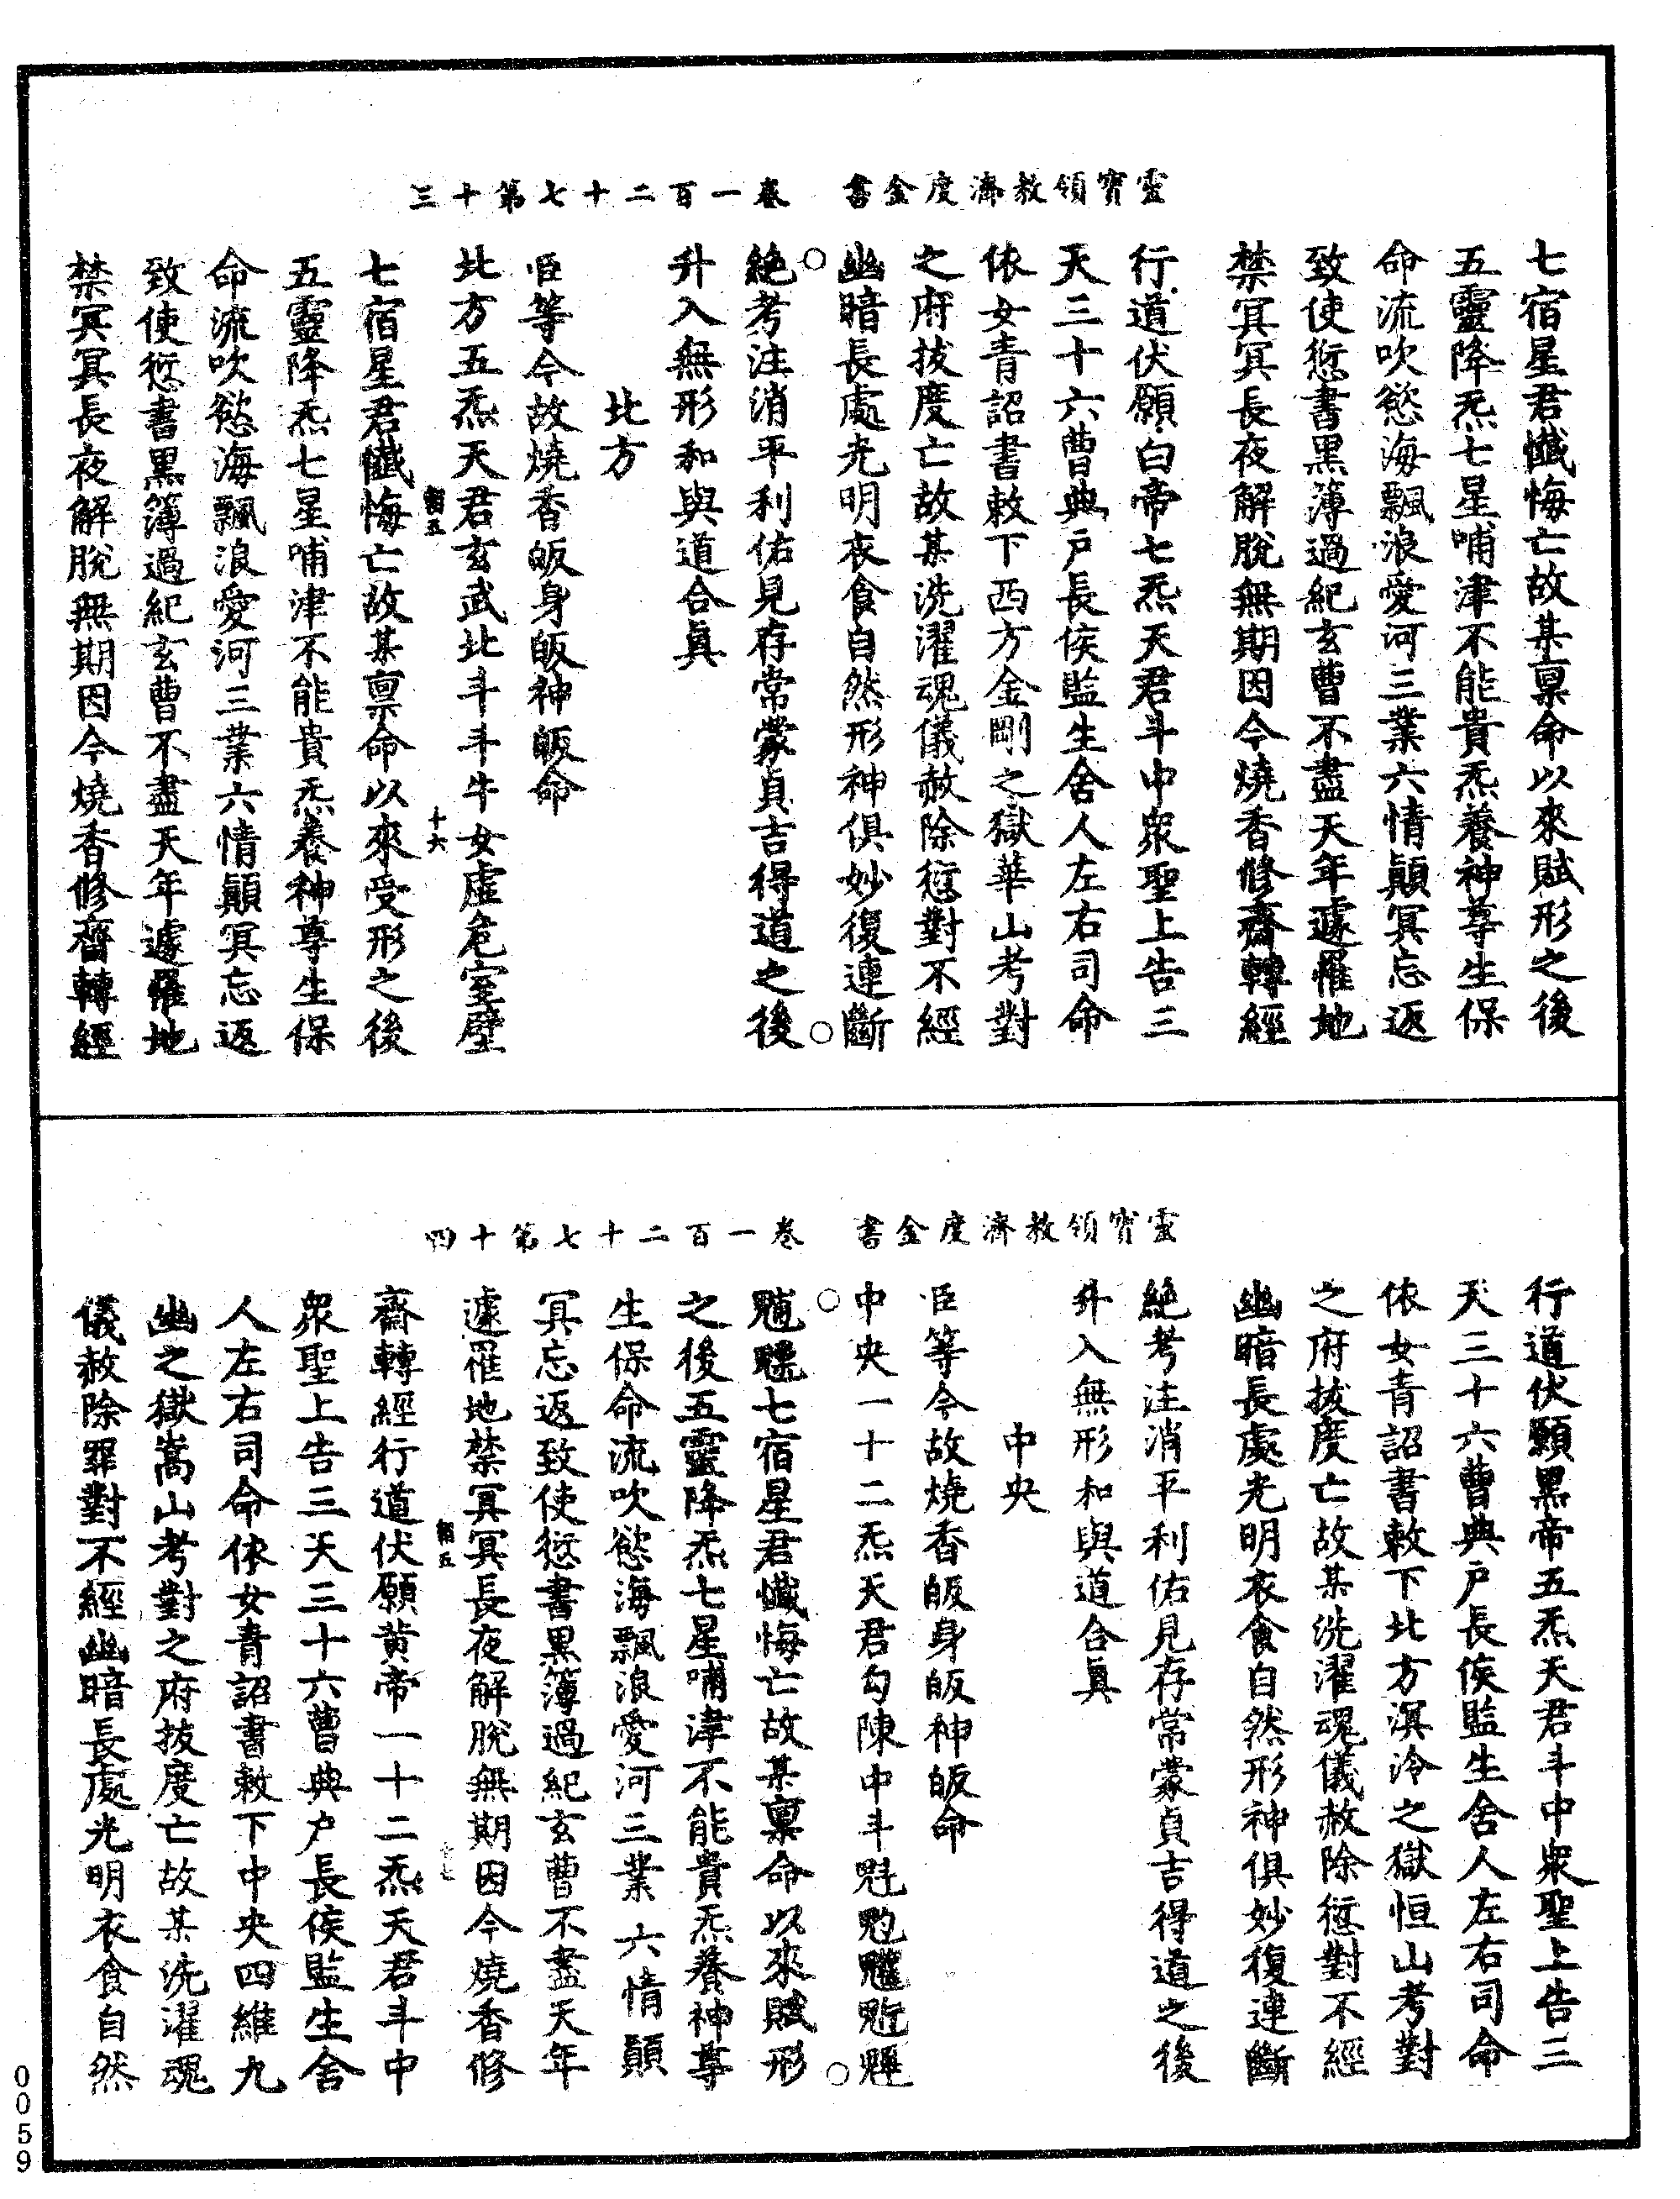 靈寶領教濟度金書 卷一百二十七第十三
七宿星君懺悔亡故某禀命以來賦形之後
五靈降炁七星哺津不能貴炁養神尊生保
命流吹慾海飄浪愛河三業六情顚冥忘返
致使愆書黑簿過紀玄曹不盡天年遽罹地
禁冥冥長夜解脫無期因今燒香修齋轉經
行道伏願白帝七炁天君斗中衆聖上告三
天三十六曹典户長侯監生舍人左右司命
依女青詔書敕下西方金剛之獄華山考對
之府拔度亡故某洗濯魂儀赦除愆對不經
幽暗長處光明衣食自然形神俱妙復連斷
絶考注消平利佑見存常蒙貞吉得道之後
升入無形和與道合眞
北方
臣等今故燒香皈身皈神皈命
北方五炁天君玄武北斗斗牛女虛危室壁
七宿星君懺悔亡故某禀命以來受形之後
五靈降炁七星哺津不能貴炁養神尊生保
命流吹慾海飄浪愛河三業六情顚冥忘返
致使愆書黑簿過紀玄曹不盡天年遽罹地
禁冥冥長夜解脫無期因今燒香修齋轉經
十六
靈寶領教濟度金書 卷一百二十七第十四
行道伏願黑帝五炁天君斗中衆聖上告三
天三十六曹典户長侯監生舍人左右司命
依女青詔書敕下北方溟泠之獄恒山考對
之府拔度亡故某洗濯魂儀赦除愆對不經
幽暗長處光明衣食自然形神俱妙復連斷
絶考注消平利佑見存常蒙貞吉得道之後
升入無形和與道合眞
中央
臣等今故燒香皈身皈神皈命
中央一十二炁天君勾陳中斗魁
七宿星君懺悔亡故某禀命以來賦形
之後五靈降炁七星哺津不能貴炁養神尊
生保命流吹慾海飄浪愛河三業六情顚
冥忘返致使愆書黑簿過紀玄曹不盡天年
遽罹地禁冥冥長夜解脫無期因今燒香修
齋轉經行道伏願黄帝一十二炁天君斗中
衆聖上告三天三十六曹典户長侯監生舍
人左右司命依女青詔書敕下中央四維九
幽之獄嵩山考對之府拔度亡故某洗濯魂
儀赦除罪對不經幽暗長處光明衣食自然
0059